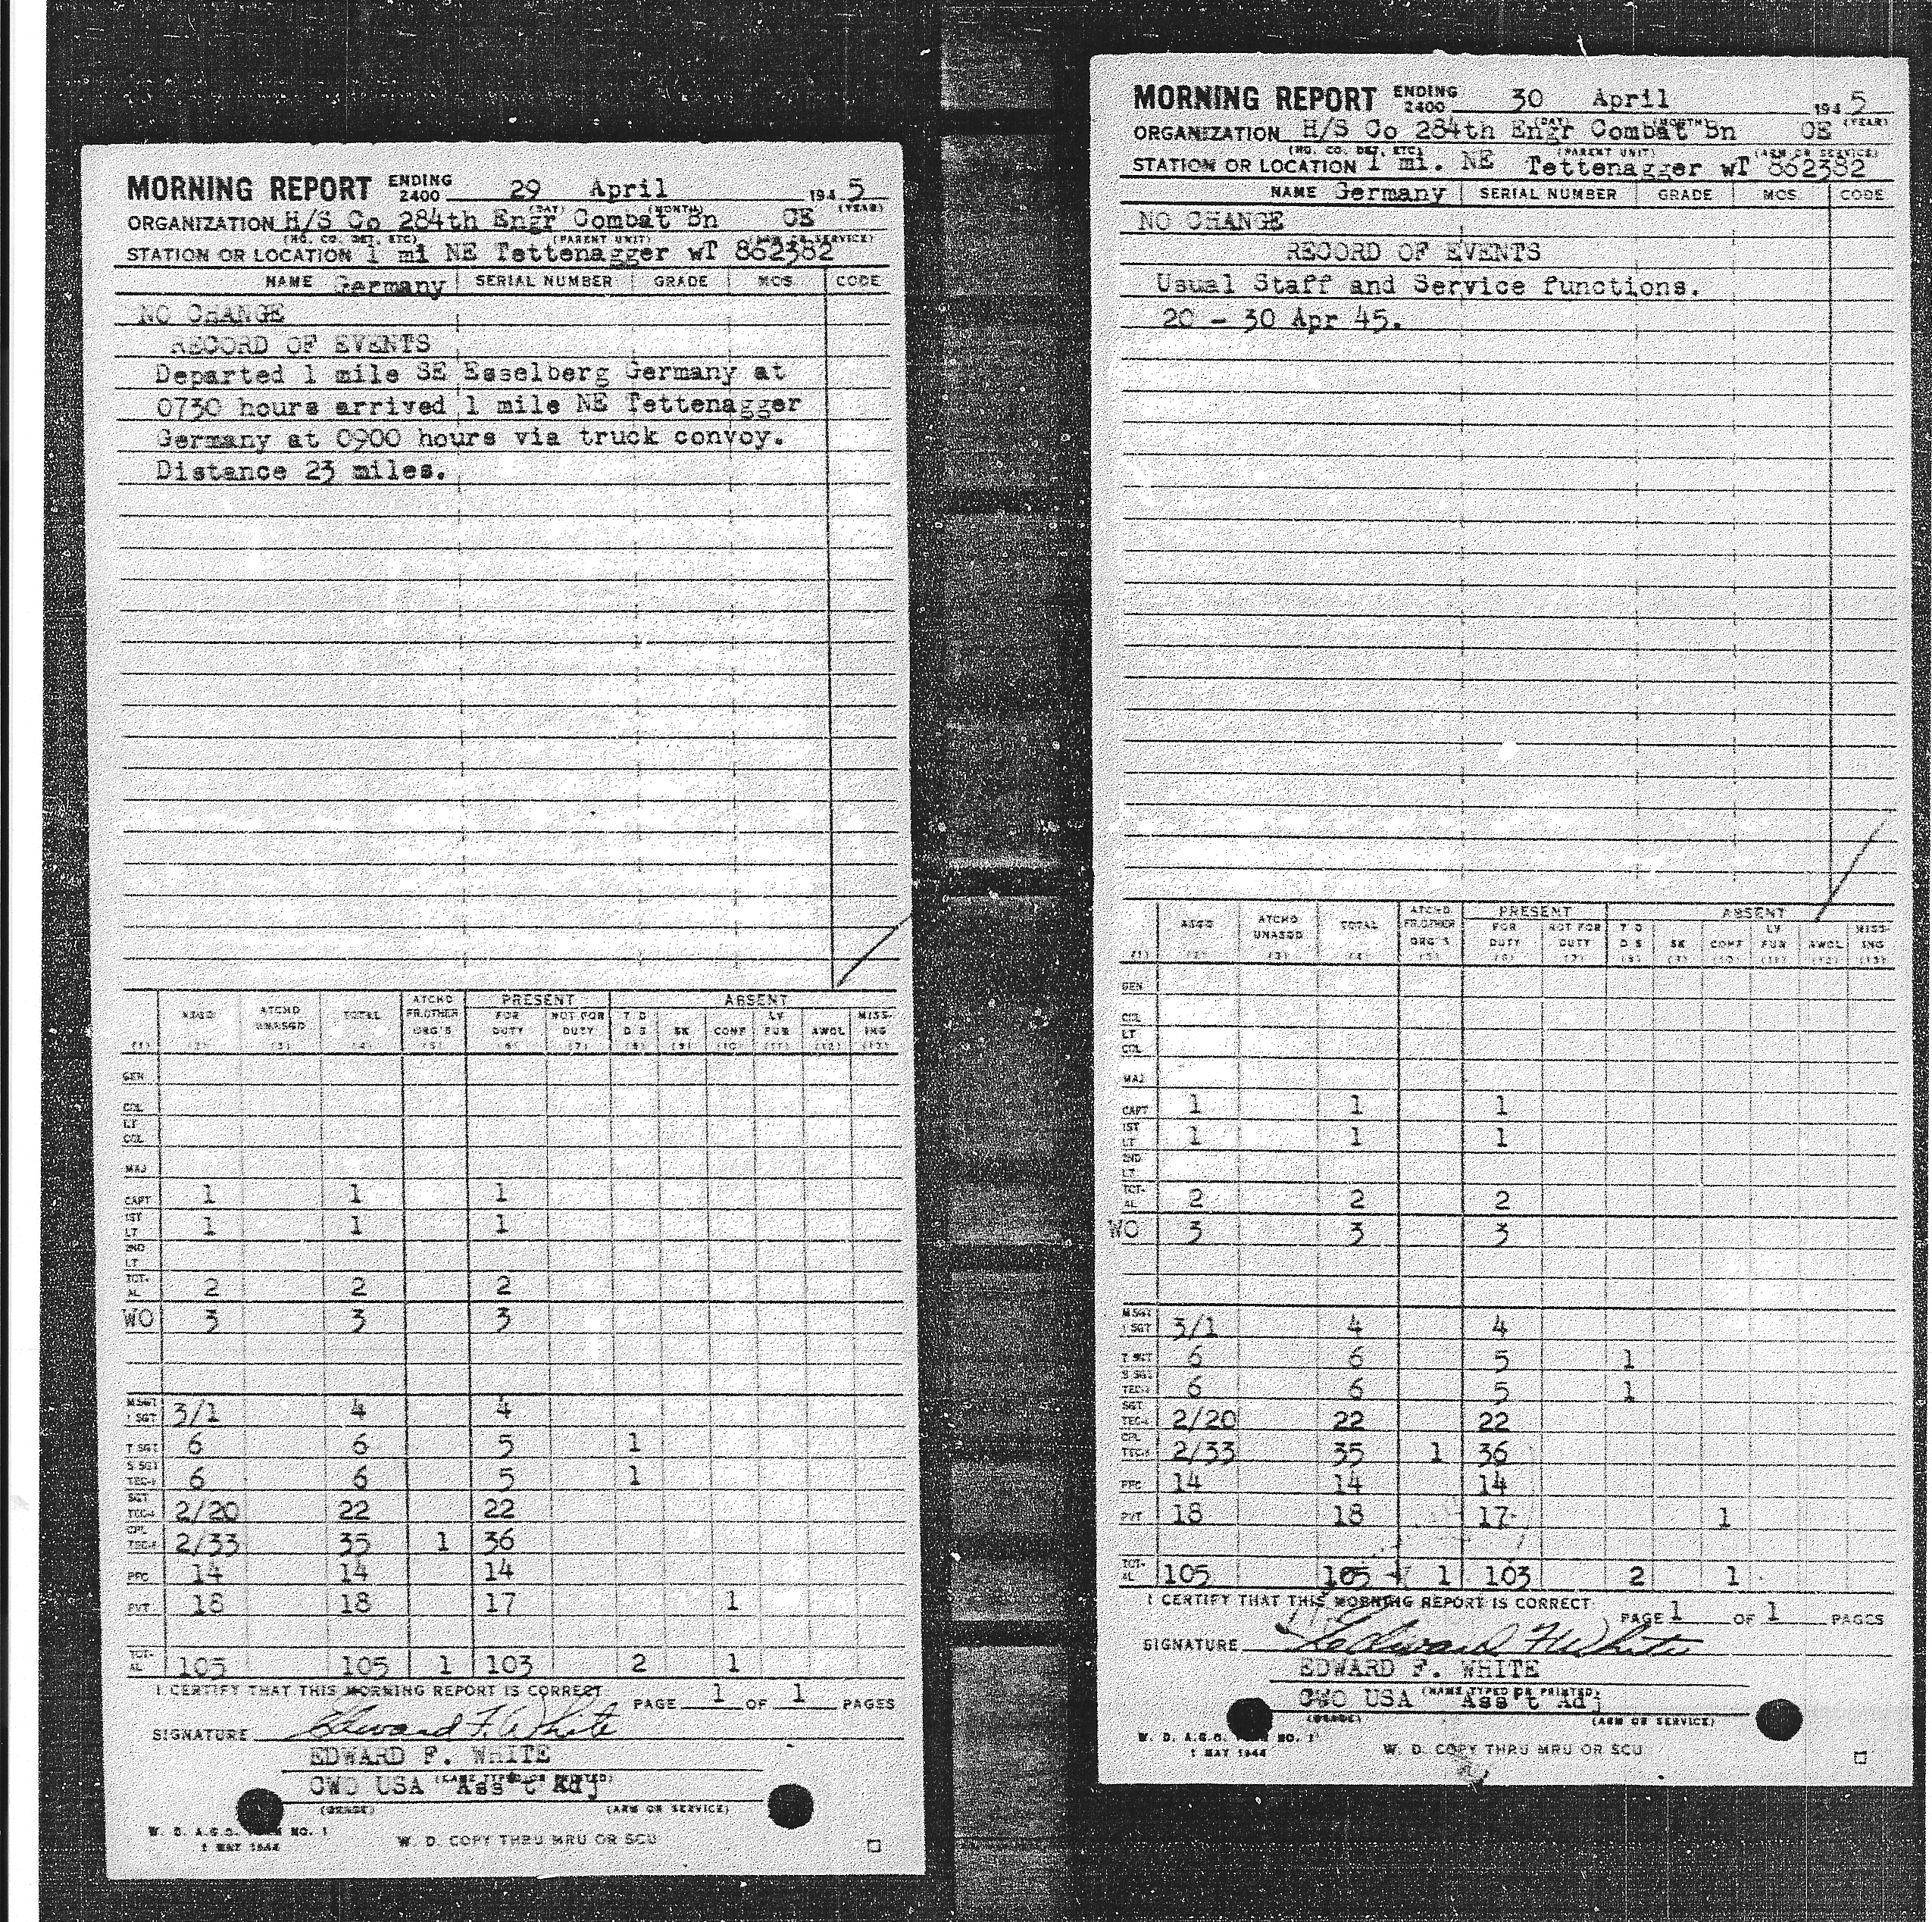 MORNING REPORT ENDING 2400 29 April 1945
(DAY) (MONTH) (YEAR)
ORGANIZATION H/S Co 284th Engr Combat Bn CE
(HQ. CO. DET. ETC) (PARENT UNIT) (ARM OR SERVICE)
STATION OR LOCATION 1 mi NE Tettenagger wT 862382
NAME Germany SERIAL NUMBER GRADE MOS CODE
NO CHANGE
RECORD OF EVENTS
Departed 1 mile SE Esselberg Germany at
0730 hours arrived 1 mile NE Tettenagger
Germany at 0900 hours via truck convoy.
Distance 23 miles.
PRESENT ABSENT
ASGD ATCHD UNASGD TOTAL ATCHD FR.OTHER ORG'S FOR DUTY NOT FOR DUTY T D D S SK CONF LV FUR AWOL MISS-ING
(1) (2) (3) (4) (5) (6) (7) (8) (9) (10) (11) (12) (13)
GEN
COL
LT COL
MAJ
CAPT 1 1 1
1ST LT 1 1 1
2ND LT
TOT-AL 2 2 2
WO 3 3 3
M SGT 1 SGT 3/1 4 4
T SGT 6 6 5 1
S SGT TEC-3 6 6 5 1
SGT TEC-4 2/20 22 22
CPL TEC-5 2/33 35 1 36
PFC 14 14 14
PVT 18 18 17 1
TOT-AL 105 105 1 103 2 1
I CERTIFY THAT THIS MORNING REPORT IS CORRECT PAGE 1 OF 1 PAGES
SIGNATURE Edward F. White
EDWARD F. WHITE
(NAME TYPED OR PRINTED)
CWO USA Ass't Adj
(GRADE) (ARM OR SERVICE)
W. D. A.G.O. FORM NO. 1
1 MAY 1944
W. D. COPY THRU MRU OR SCU
MORNING REPORT ENDING 2400 30 April 1945
(DAY) (MONTH) (YEAR)
ORGANIZATION H/S Co 284th Engr Combat Bn CE
(HQ. CO. DET. ETC) (PARENT UNIT) (ARM OR SERVICE)
STATION OR LOCATION 1 mi. NE Tettenagger wT 862382
NAME Germany SERIAL NUMBER GRADE MOS CODE
NO CHANGE
RECORD OF EVENTS
Usual Staff and Service functions.
20 - 30 Apr 45.
PRESENT ABSENT
ASGD ATCHD UNASGD TOTAL ATCHD FR.OTHER ORG'S FOR DUTY NOT FOR DUTY T D D S SK CONF LV FUR AWOL MISS-ING
(1) (2) (3) (4) (5) (6) (7) (8) (9) (10) (11) (12) (13)
GEN
COL
LT COL
MAJ
CAPT 1 1 1
1ST LT 1 1 1
2ND LT
TOT-AL 2 2 2
WO 3 3 3
M SGT 1 SGT 3/1 4 4
T SGT 6 6 5 1
S SGT TEC-3 6 6 5 1
SGT TEC-4 2/20 22 22
CPL TEC-5 2/33 35 1 36
PFC 14 14 14
PVT 18 18 17 1
TOT-AL 105 105 1 103 2 1
I CERTIFY THAT THIS MORNING REPORT IS CORRECT
PAGE 1 OF 1 PAGES
SIGNATURE Edward F White
EDWARD F. WHITE
(NAME TYPED OR PRINTED)
CWO USA Ass't Adj
(GRADE) (ARM OR SERVICE)
W. D. A.G.O. NO. 1
1 MAY 1944
W. D. COPY THRU MRU OR SCU